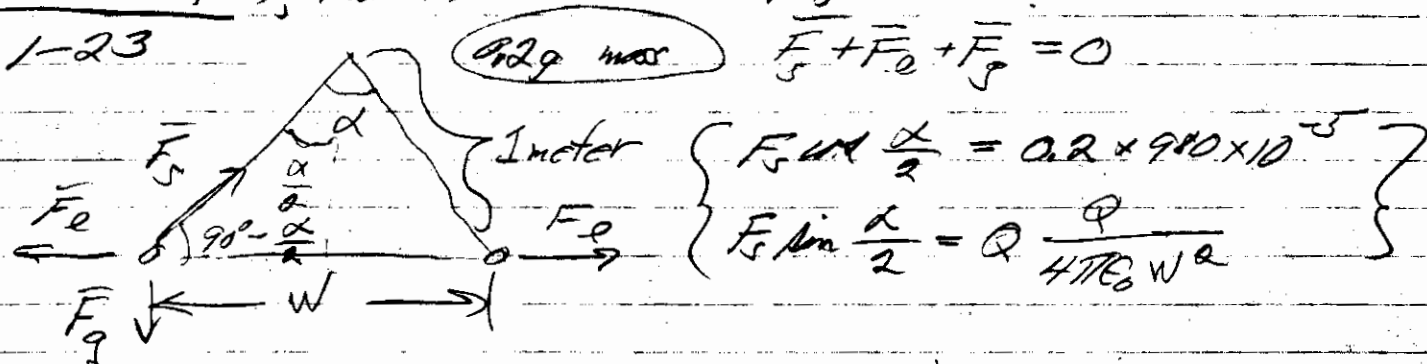 1-23
0.2g mass
F̅s + F̅e + F̅g = 0
α
1 meter
F̅s
α/2
F̅e
90° - α/2
Fe
W
F̅g
{ Fs cos α/2 = 0.2 × 980 × 10⁻⁵ }
{ Fs sin α/2 = Q Q/(4πε₀W²) }